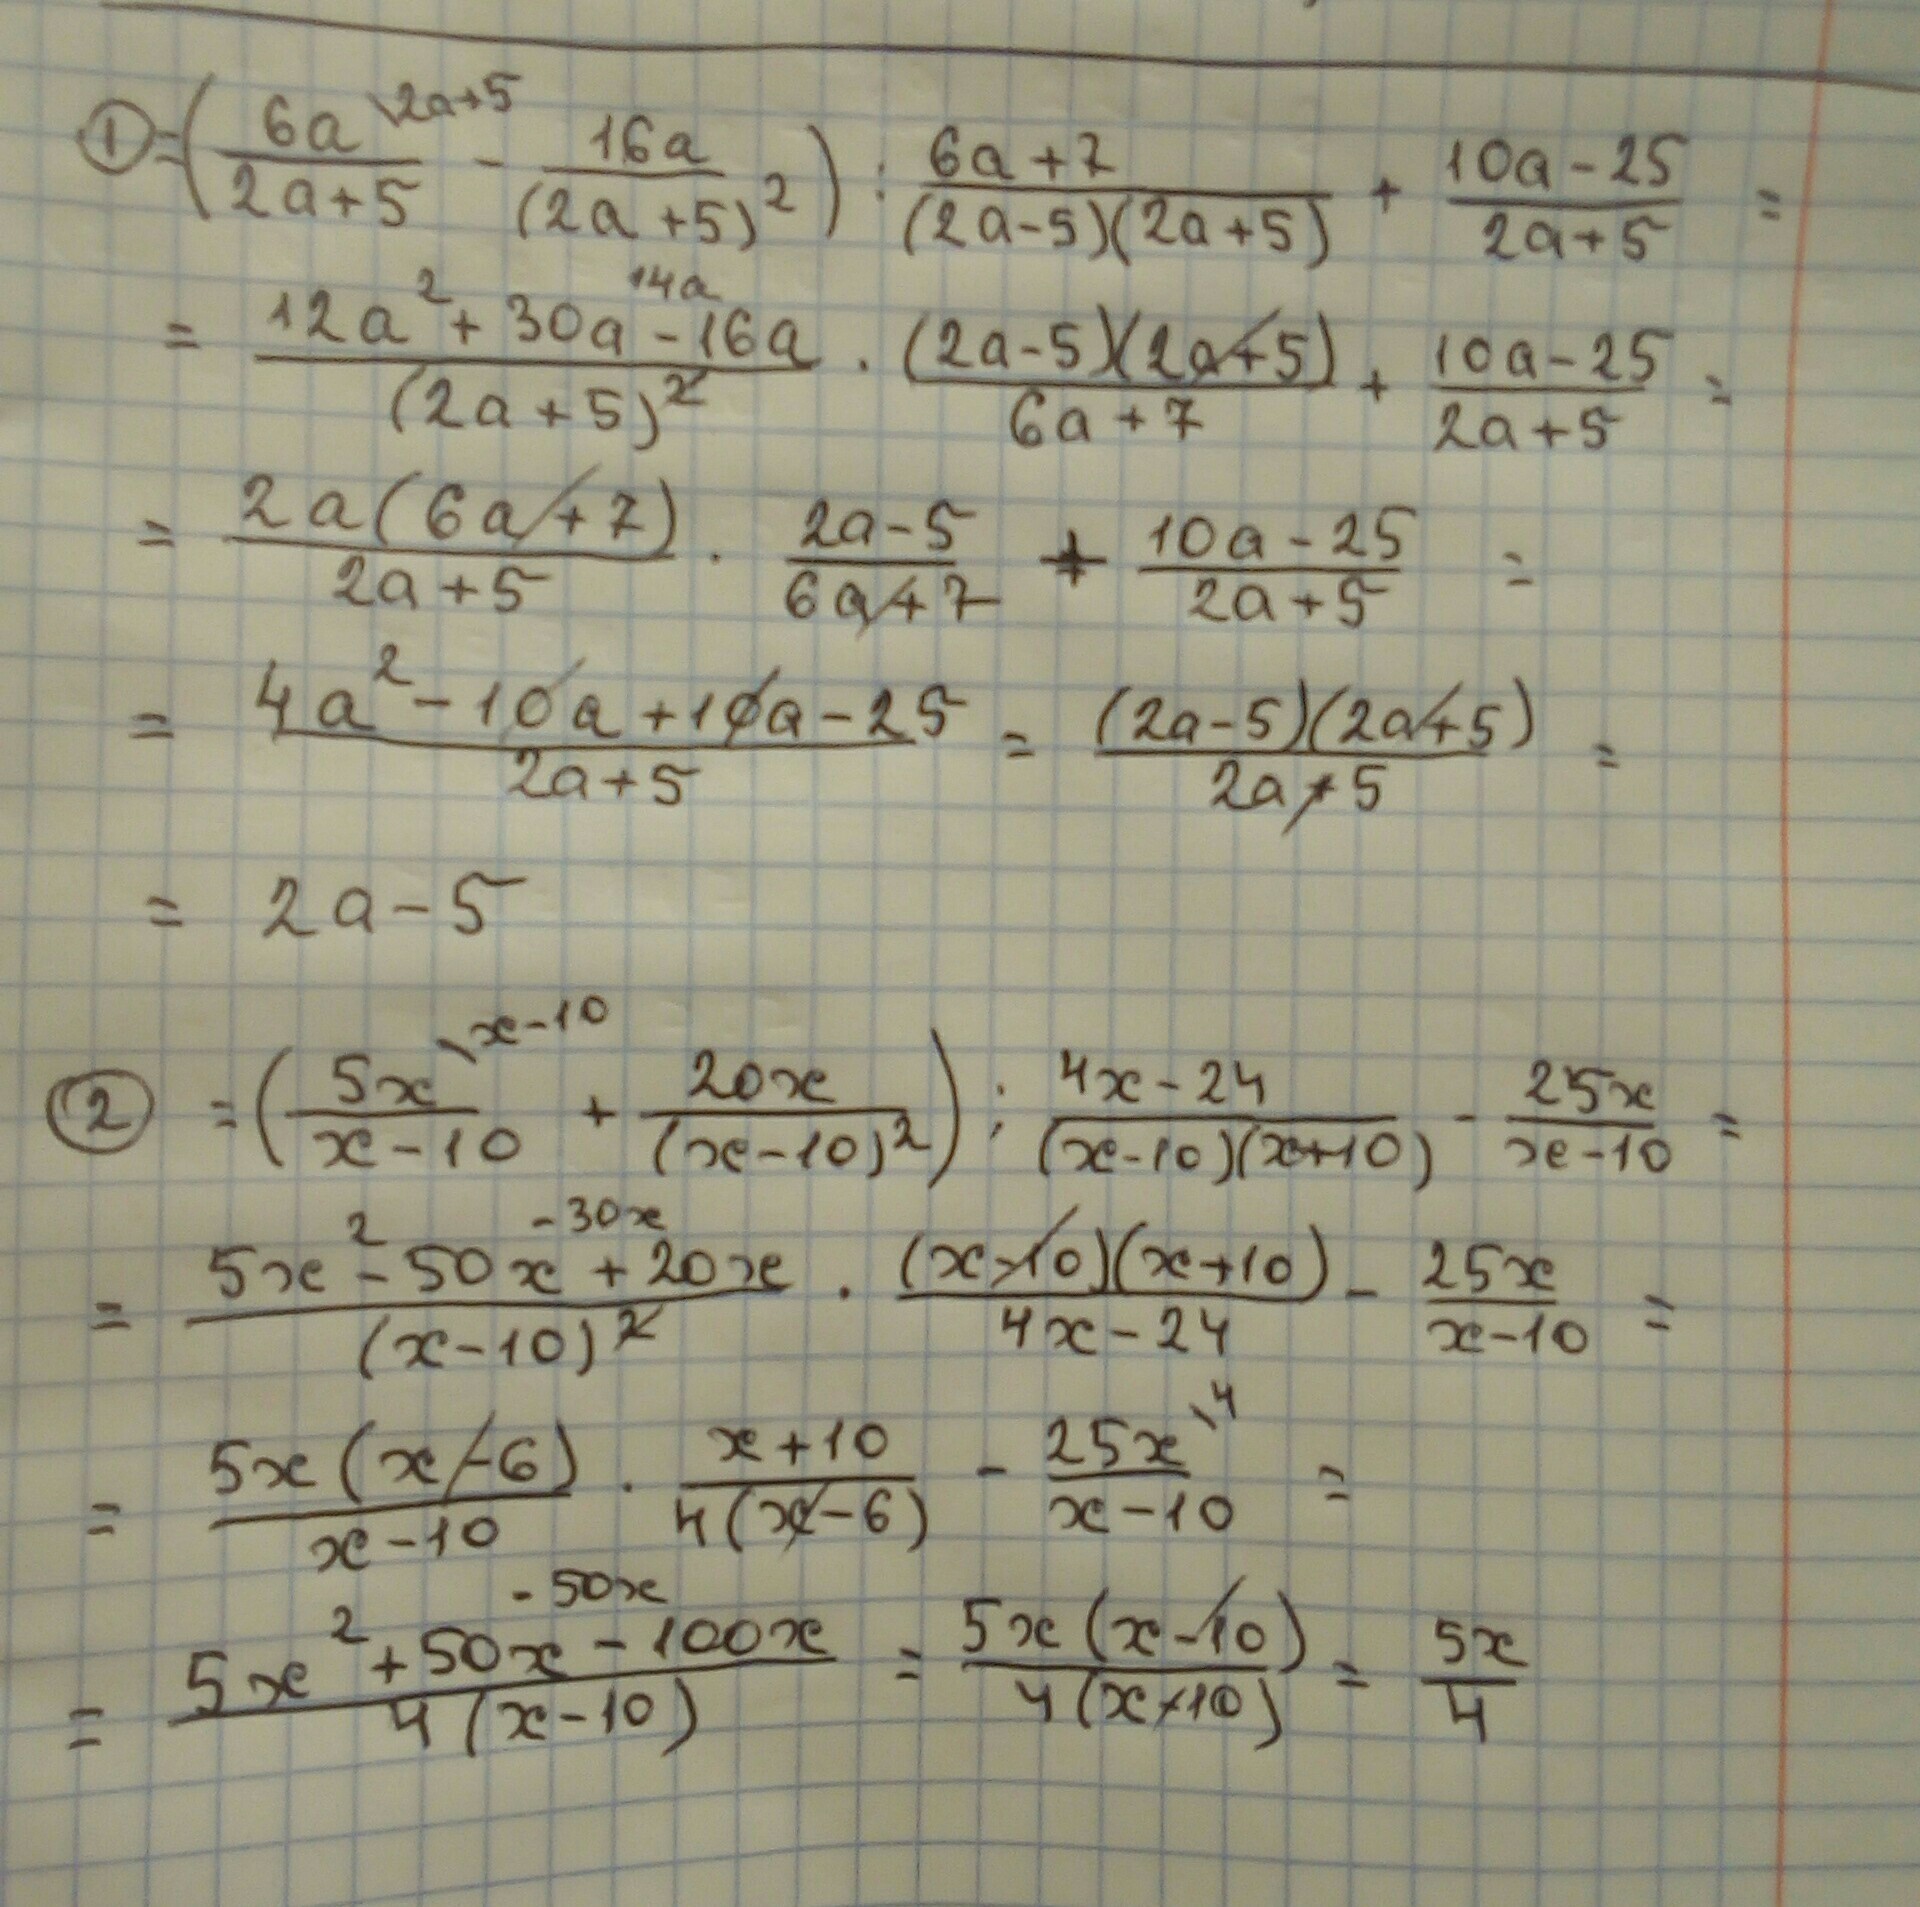 ① = (6a^{\2a+5}/(2a+5) - 16a/(2a+5)²) : (6a+7)/((2a-5)(2a+5)) + (10a-25)/(2a+5) =
= (12a²+30a-16a)/(2a+5)² · ((2a-5)(2a+5))/(6a+7) + (10a-25)/(2a+5) =
14a
= 2a(6a+7)/(2a+5) · (2a-5)/(6a+7) + (10a-25)/(2a+5) =
= (4a²-10a+10a-25)/(2a+5) = ((2a-5)(2a+5))/(2a+5) =
= 2a-5
② = (5x^{\x-10}/(x-10) + 20x/(x-10)²) : (4x-24)/((x-10)(x+10)) - 25x/(x-10) =
-30x
= (5x²-50x+20x)/(x-10)² · ((x-10)(x+10))/(4x-24) - 25x/(x-10) =
= 5x(x-6)/(x-10) · (x+10)/(4(x-6)) - 25x^{\4}/(x-10) =
-50x
= (5x²+50x-100x)/(4(x-10)) = 5x(x-10)/(4(x-10)) = 5x/4